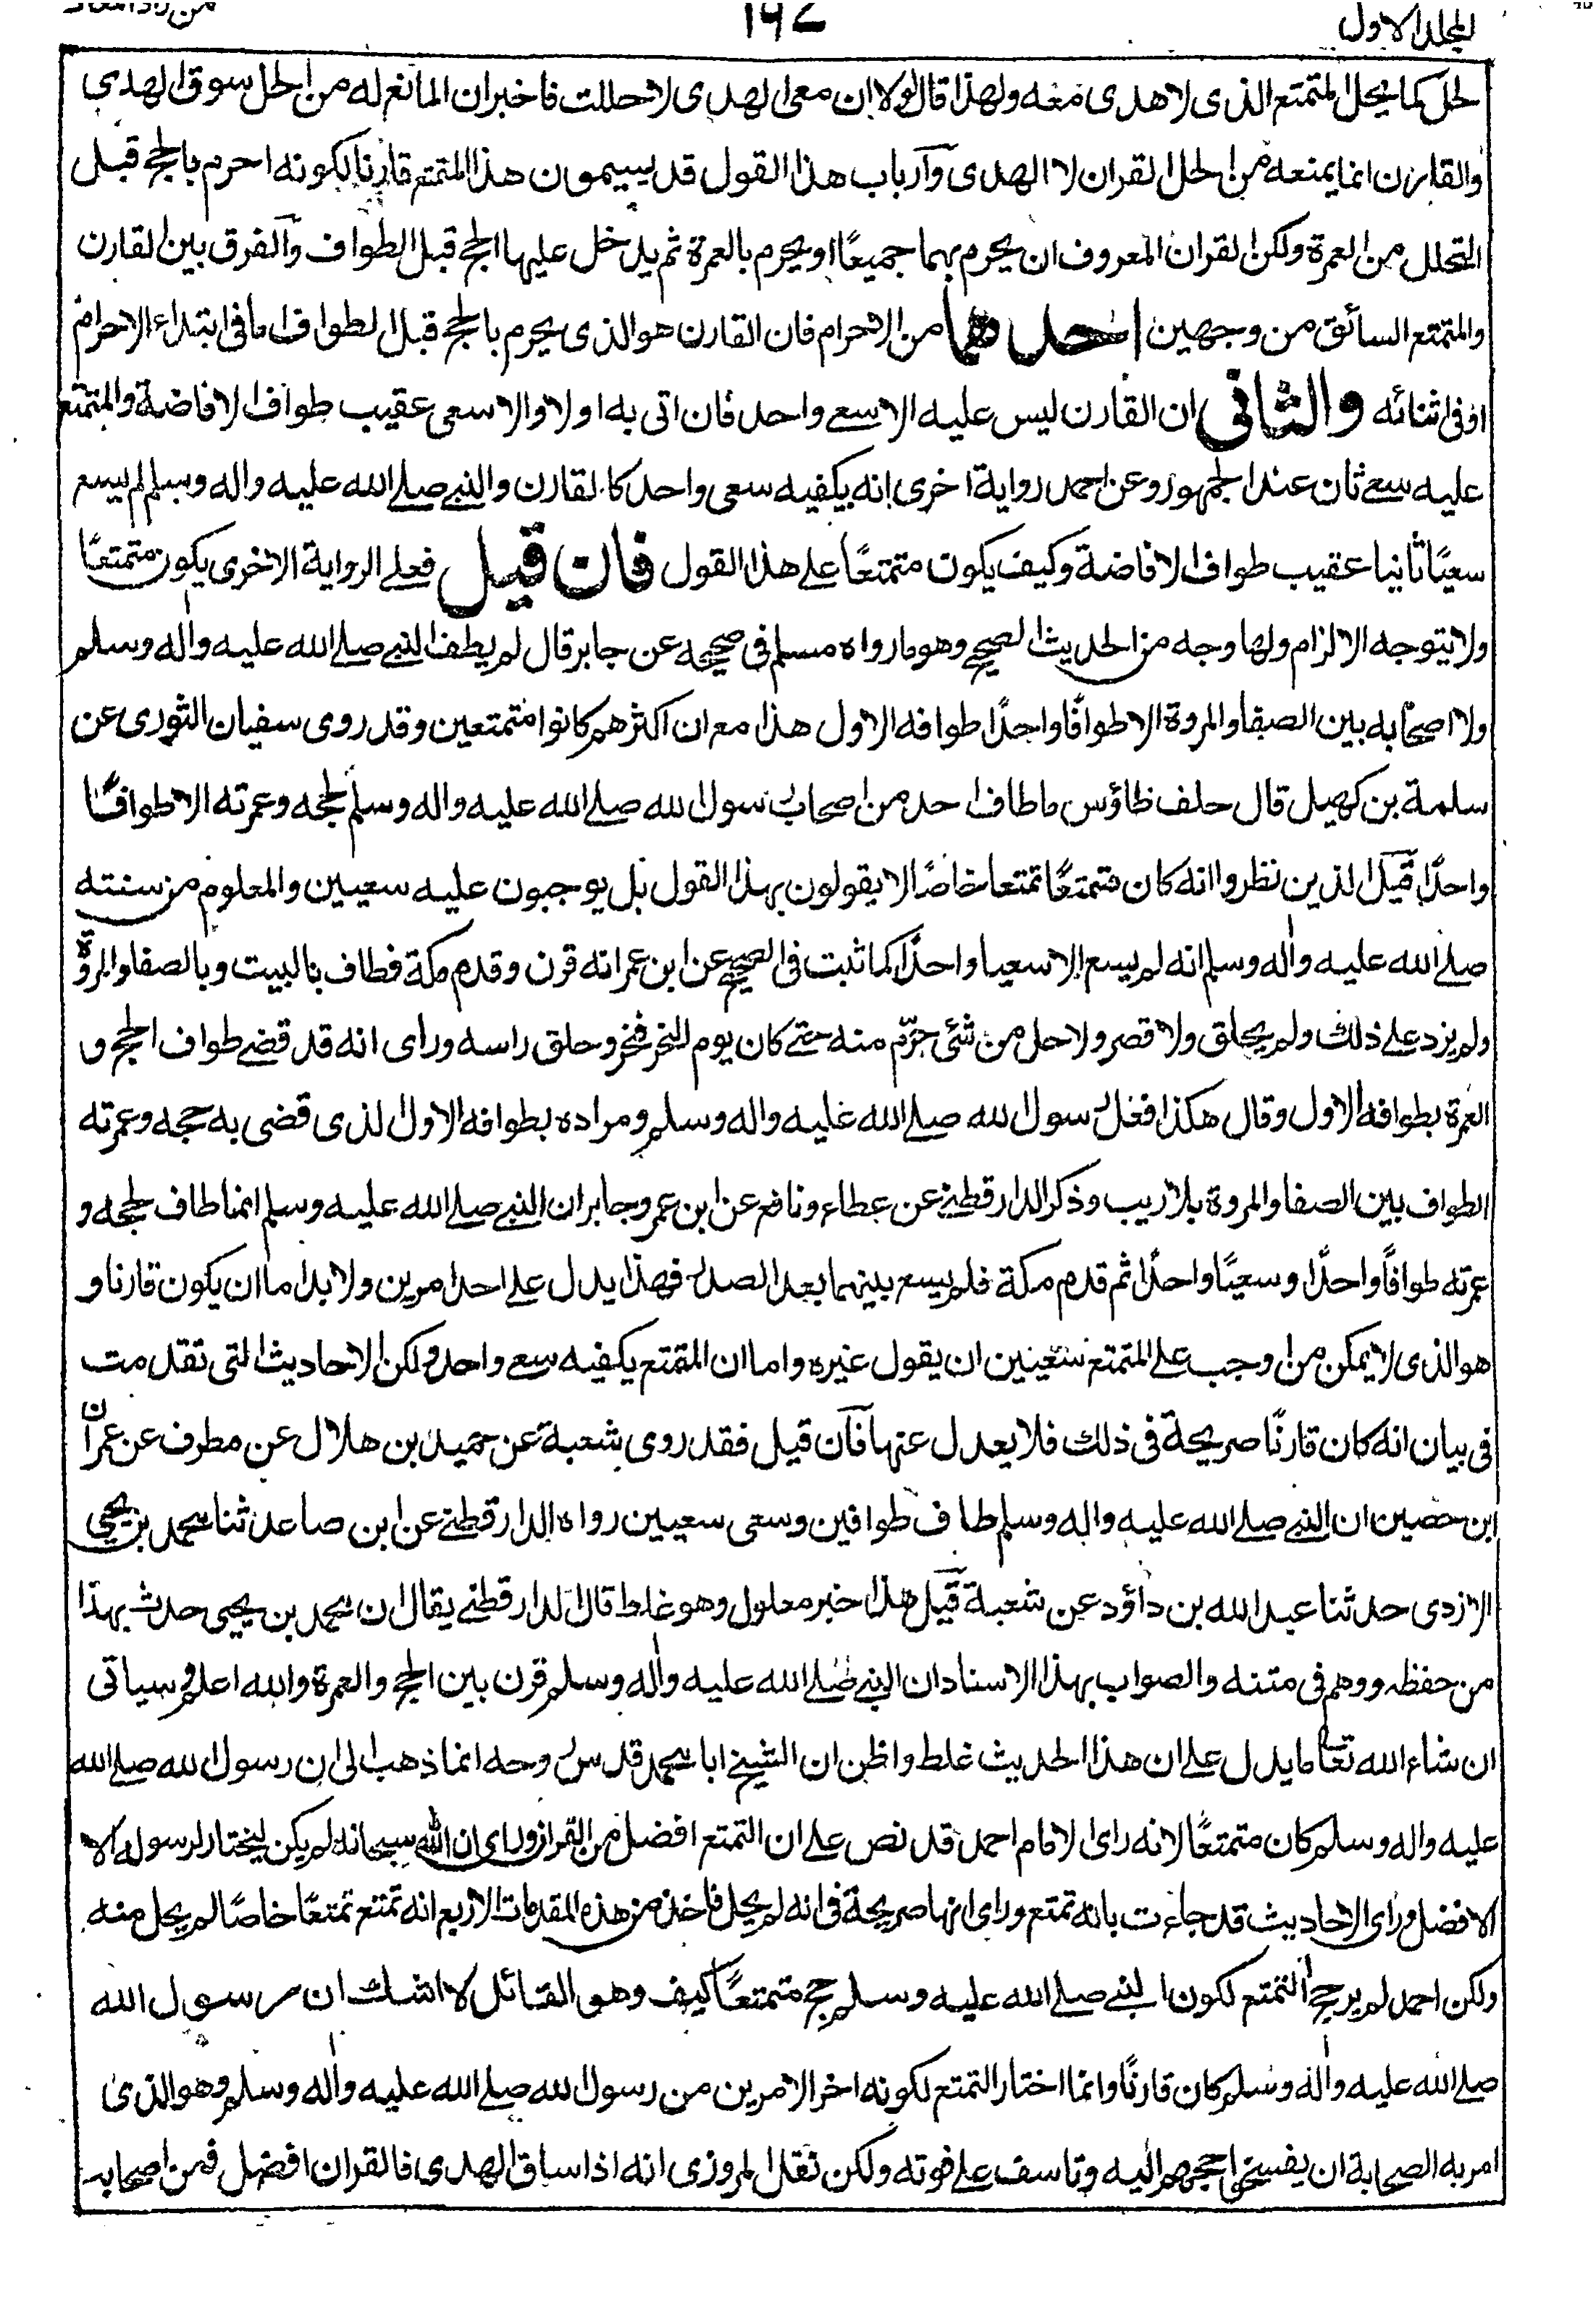 المجلد الاول
١٩٧
من زاد المعاد
لحل كما يحل المتمتع الذى لاهدى معه ولهذا قال لولا ان معى الهدى لاحللت فاخبر ان المانع له من الحل سوق الهدى
والقارن انما يمنعه من الحل القران لا الهدى وارباب هذا القول قد يسمون هذا المتمتع قارنا لكونه احرم بالحج قبل
التحلل من العمرة ولكن القران المعروف ان يحرم بهما جميعًا او يحرم بالعمرة ثم يدخل عليها الحج قبل الطواف والفرق بين القارن
والمتمتع السائق من وجهين احدهما من الاحرام فان القارن هو الذى يحرم بالحج قبل الطواف اما فى ابتداء الاحرام
او فى اثنائه والثانى ان القارن ليس عليه الا سعى واحد فان اتى به اولا والا سعى عقيب طواف الافاضة والمتمتع
عليه سعى ثان عند الجمهور وعن احمد رواية اخرى انه يكفيه سعى واحد كالقارن والنبى صلى الله عليه واله وسلم لم يسع
سعيًا ثانيا عقيب طواف الافاضة وكيف يكون متمتعًا على هذا القول فان قيل فعلى الرواية الاخرى يكون متمتعًا
ولا يتوجه الالزام ولها وجه من الحديث الصحيح وهو ما رواه مسلم فى صحيحه عن جابر قال لم يطف النبى صلى الله عليه واله وسلم
ولا اصحابه بين الصفا والمروة الا طوافًا واحدًا طوافه الاول هذا مع ان اكثرهم كانوا متمتعين وقد روى سفيان الثورى عن
سلمة بن كهيل قال حلف طاؤس ما طاف احد من اصحاب رسول الله صلى الله عليه واله وسلم لحجه وعمرته الا طوافًا
واحدًا قيل الذين نظروا انه كان متمتعًا تمتعا خاصًا لا يقولون بهذا القول بل يوجبون عليه سعيين والمعلوم من سنته
صلى الله عليه واله وسلم انه لم يسع الا سعيا واحدًا كما ثبت فى الصحيح عن ابن عمر انه قرن وقدم مكة فطاف بالبيت وبالصفا والمروة
ولم يزد على ذلك ولم يحلق ولا قصر ولا حل من شئ حرم منه حتى كان يوم النحر فنحر وحلق راسه وراى انه قد قضى طواف الحج و
العمرة بطوافه الاول وقال هكذا فعل رسول الله صلى الله عليه واله وسلم ومراده بطوافه الاول الذى قضى به حجه وعمرته
الطواف بين الصفا والمروة بلا ريب وذكر الدارقطنى عن عطاء ونافع عن ابن عمر وجابر ان النبى صلى الله عليه وسلم انما طاف لحجه و
عمرته طوافًا واحدًا وسعيًا واحدًا ثم قدم مكة فلم يسع بينهما بعد الصدر فهذا يدل على احد امرين ولا بد اما ان يكون قارنا و
هو الذى لا يمكن من اوجب على المتمتع سعيين ان يقول غيره واما ان المتمتع يكفيه سعى واحد ولكن الاحاديث التى تقدمت
فى بيان انه كان قارنًا صريحة فى ذلك فلا يعدل عنها فان قيل فقد روى شعبة عن حميد بن هلال عن مطرف عن عمران
ابن حصين ان النبى صلى الله عليه واله وسلم طاف طوافين وسعى سعيين رواه الدارقطنى عن ابن صاعد ثنا محمد بن يحيى
الازدى حدثنا عبد الله بن داؤد عن شعبة قيل هذا خبر معلول وهو غلط قال الدارقطنى يقال ان محمد بن يحيى حدث بهذا
من حفظه ووهم فى متنه والصواب بهذا الاسناد ان النبى صلى الله عليه واله وسلم قرن بين الحج والعمرة والله اعلم وسياتى
ان شاء الله تعا ما يدل على ان هذا الحديث غلط واظن ان الشيخ ابا محمد قدس روحه انما ذهب الى ان رسول الله صلى الله
عليه واله وسلم كان متمتعًا لانه راى الامام احمد قد نص على ان التمتع افضل من القران وراى ان الله سبحانه لم يكن ليختار لرسوله الا
الافضل وراى الاحاديث قد جاءت بانه تمتع وراى انها صريحة فى انه لم يحل فاخذ من هذه المقدمات الاربع انه تمتع تمتعًا خاصًا لم يحل منه
ولكن احمد لم يرجح التمتع لكون النبى صلى الله عليه وسلم حج متمتعًا كيف وهو القائل لا اشك ان رسول الله
صلى الله عليه واله وسلم كان قارنًا وانما اختار التمتع لكونه اخر الامرين من رسول الله صلى الله عليه واله وسلم وهو الذى
امر به الصحابة ان يفسخوا حجهم اليه وتاسف على فوته ولكن نقل المروزى انه اذا ساق الهدى فالقران افضل فمن اصحابه